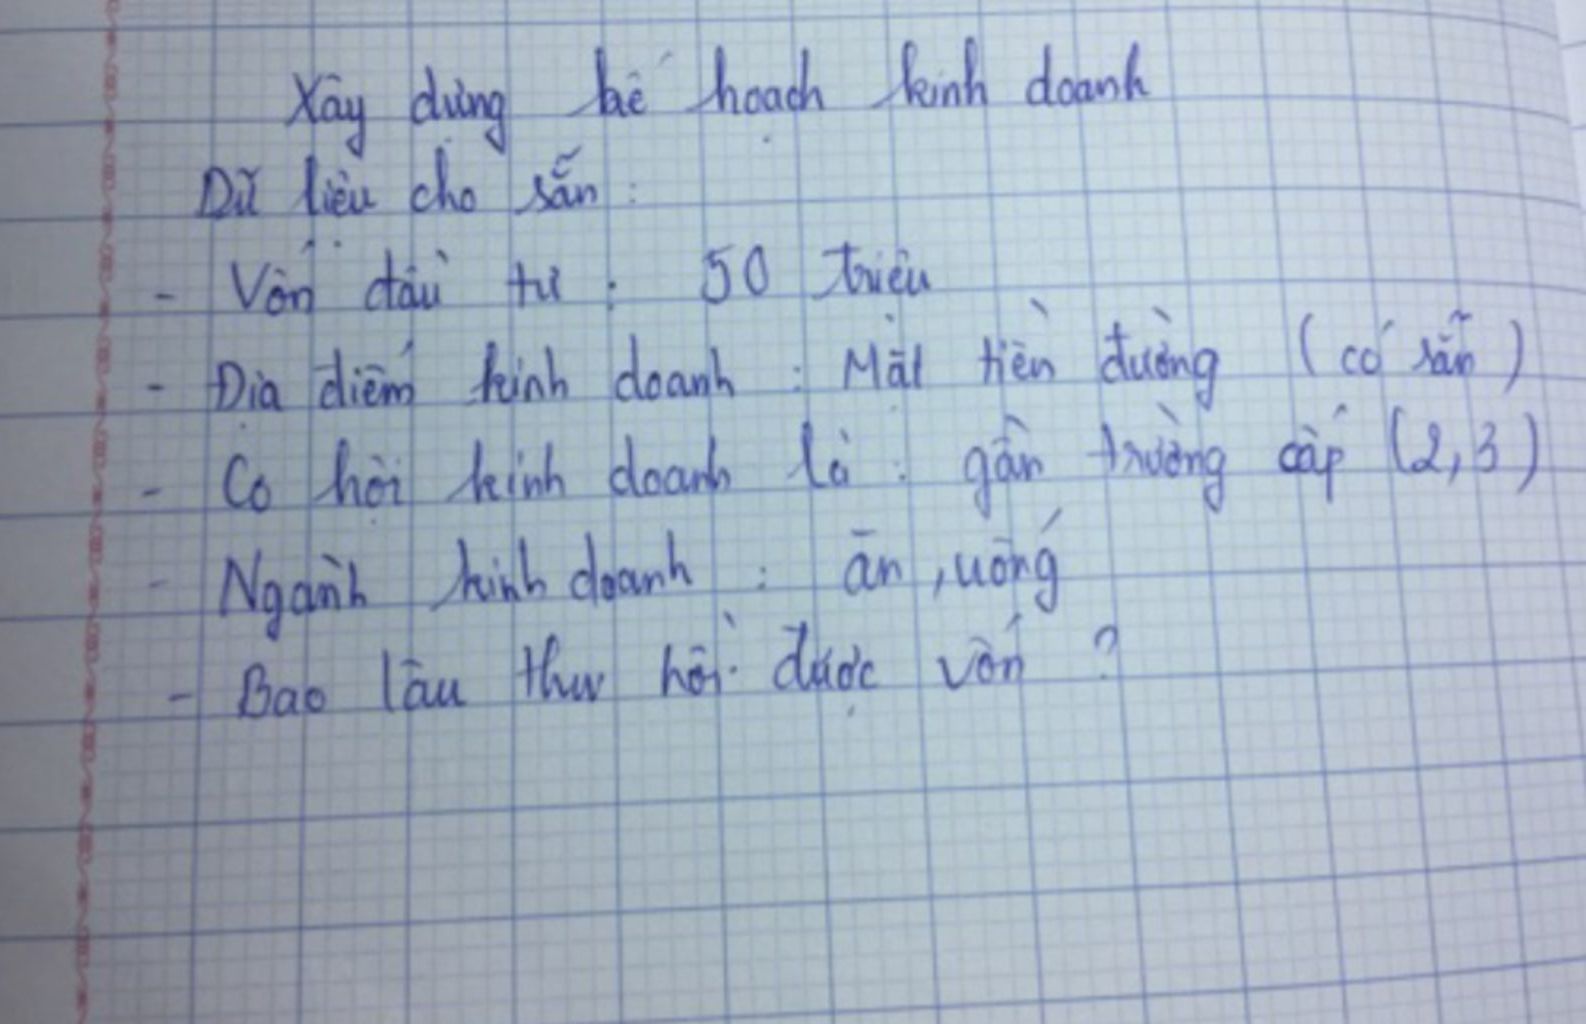 Xây dựng kế hoạch kinh doanh
Dữ liệu cho sẵn:
- Vốn đầu tư : 50 triệu
- Địa điểm kinh doanh : Mặt tiền đường (có sẵn)
- Cơ hội kinh doanh là : gần trường cấp (2,3)
- Ngành kinh doanh : ăn, uống
- Bao lâu thu hồi được vốn ?